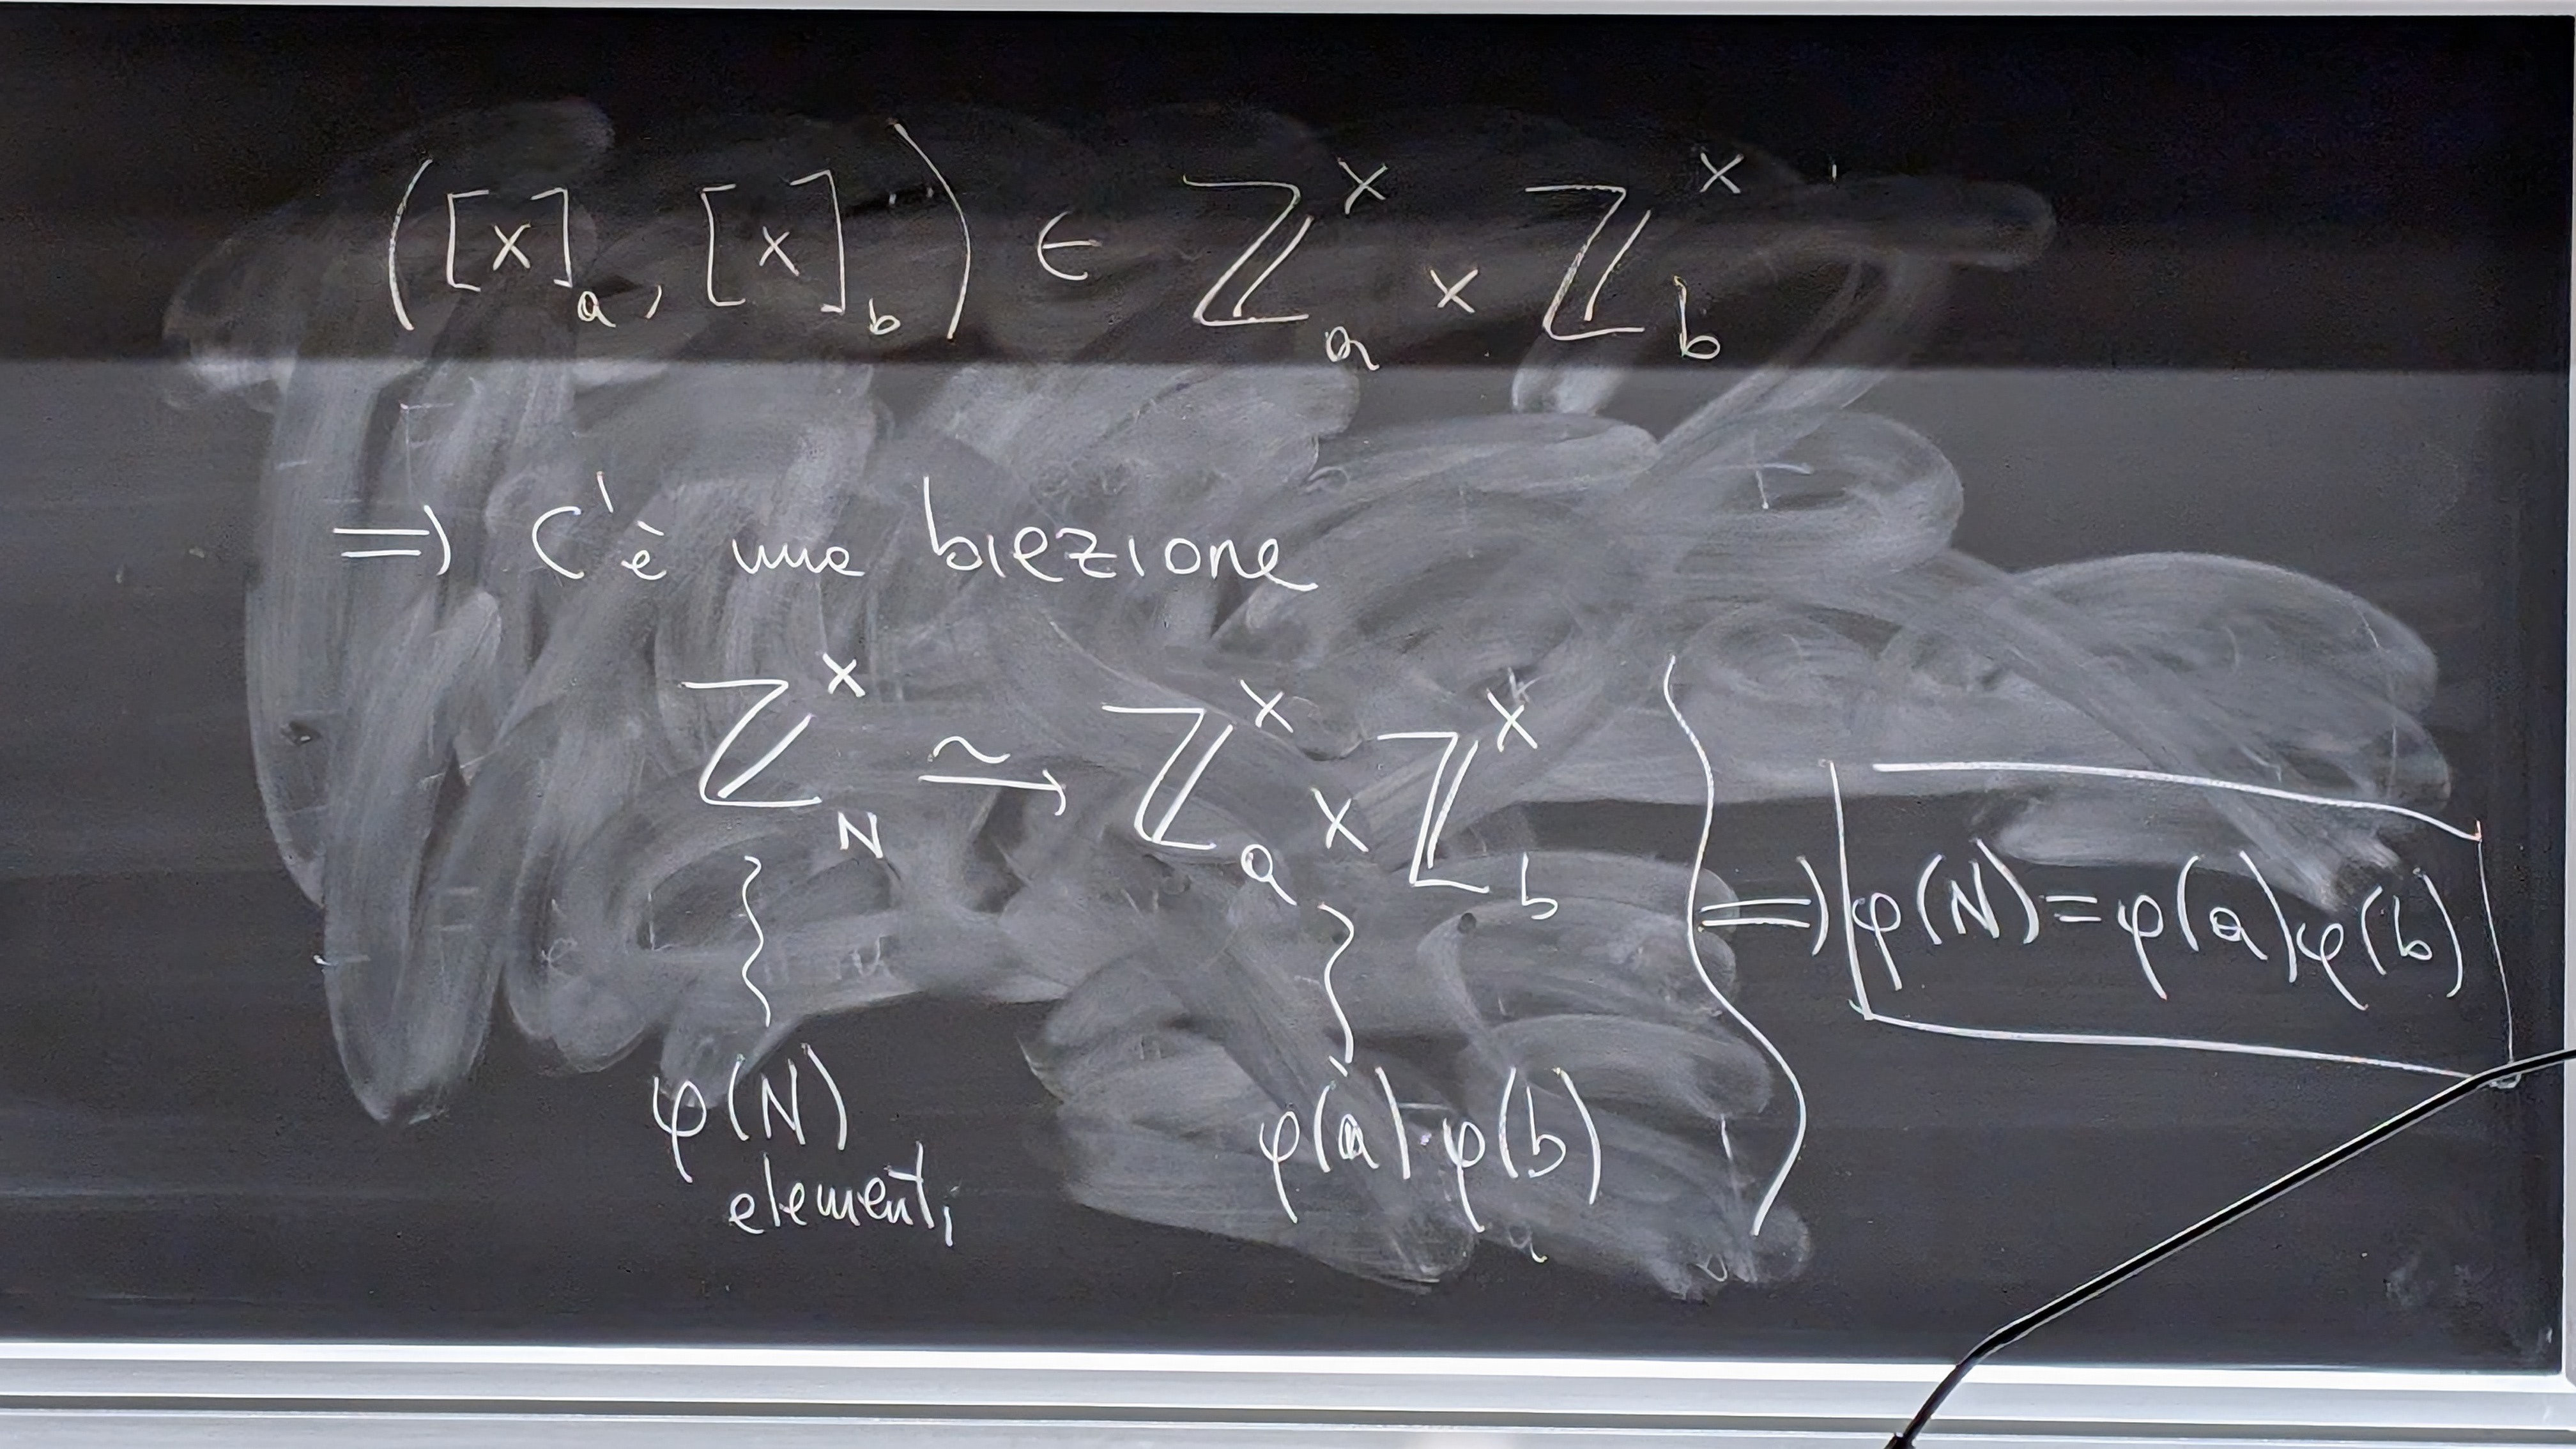 ([x]_a, [x]_b) ∈ ℤ_a^× × ℤ_b^×
⇒ C'è una biezione
ℤ_N^× ⥲ ℤ_a^× × ℤ_b^×
⇒ φ(N)=φ(a)φ(b)
φ(N) φ(a)·φ(b)
elementi